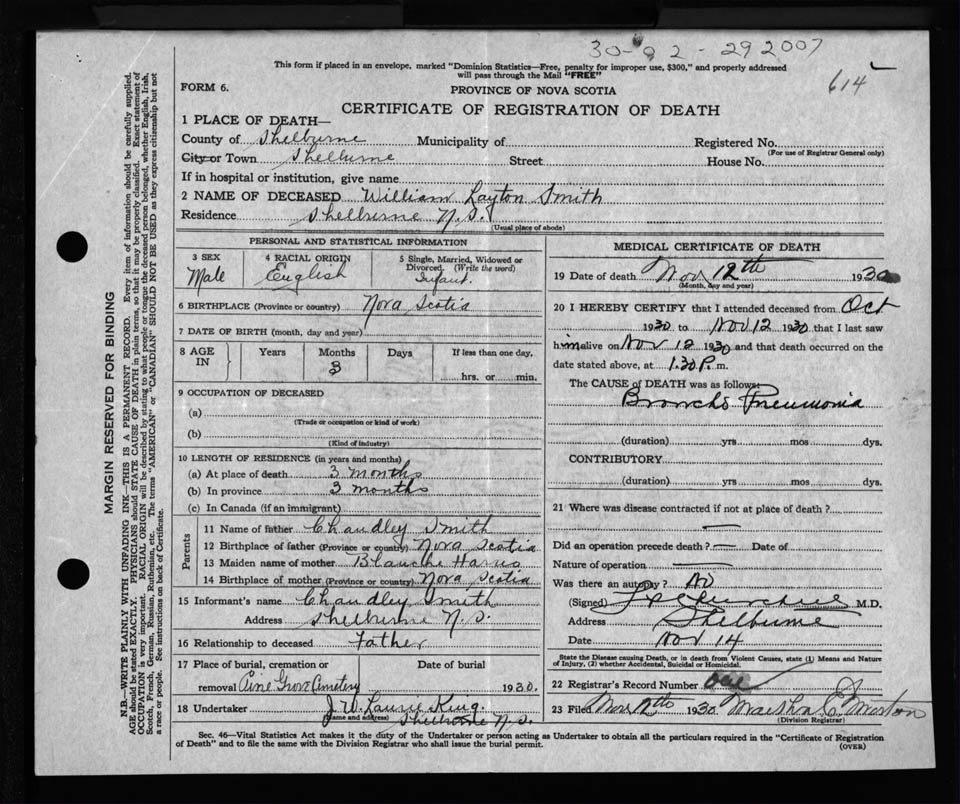 30-92-29 2007
614
This form if placed in an envelope, marked "Dominion Statistics—Free, penalty for improper use, $300," and properly addressed
will pass through the Mail "FREE"
FORM 6.
PROVINCE OF NOVA SCOTIA
CERTIFICATE OF REGISTRATION OF DEATH
1 PLACE OF DEATH—
County of Shelburne Municipality of Registered No.
(For use of Registrar General only)
City or Town Shelburne Street House No.
If in hospital or institution, give name
2 NAME OF DECEASED William Layton Smith
Residence Shelburne N.S.
(Usual place of abode)
PERSONAL AND STATISTICAL INFORMATION
3 SEX 4 RACIAL ORIGIN 5 Single, Married, Widowed or Divorced. (Write the word)
Male English Infant.
6 BIRTHPLACE (Province or country) Nova Scotia
7 DATE OF BIRTH (month, day and year)
8 AGE IN Years Months Days If less than one day,
3 hrs. or min.
9 OCCUPATION OF DECEASED
(a)
(Trade or occupation or kind of work)
(b)
(Kind of industry)
10 LENGTH OF RESIDENCE (in years and months)
(a) At place of death 3 months
(b) In province 3 months
(c) In Canada (if an immigrant)
Parents
11 Name of father Chandley Smith
12 Birthplace of father (Province or country) Nova Scotia
13 Maiden name of mother Blanche
14 Birthplace of mother (Province or country) Nova Scotia
15 Informant's name Chandley Smith
Address Shelburne N.S.
16 Relationship to deceased Father
17 Place of burial, cremation or Date of burial
removal Pine Grove Cemetery 1930.
18 Undertaker J.W. Laurie King.
(Name and address) Shelburne N.S.
MEDICAL CERTIFICATE OF DEATH
19 Date of death Nov 12th 1930
(Month, day and year)
20 I HEREBY CERTIFY that I attended deceased from Oct
1930 to Nov 12 1930 that I last saw
him alive on Nov 12 1930 and that death occurred on the
date stated above, at 1.30 P. m.
The CAUSE of DEATH was as follows:
Broncho Pneumonia
(duration) yrs mos dys.
CONTRIBUTORY
(duration) yrs mos dys.
21 Where was disease contracted if not at place of death?
—
Did an operation precede death? — Date of
Nature of operation —
Was there an autopsy? No
(Signed) M.D.
Address Shelburne
Date Nov 14
State the Disease causing Death, or in death from Violent Causes, state (1) Means and Nature
of Injury, (2) whether Accidental, Suicidal or Homicidal.
22 Registrar's Record Number
23 Filed Nov 12th 1930
(Division Registrar)
Sec. 46—Vital Statistics Act makes it the duty of the Undertaker or person acting as Undertaker to obtain all the particulars required in the "Certificate of Registration
of Death" and to file the same with the Division Registrar who shall issue the burial permit.
(OVER)
MARGIN RESERVED FOR BINDING
N.B.—WRITE PLAINLY WITH UNFADING INK—THIS IS A PERMANENT RECORD. Every item of information should be carefully supplied.
AGE should be stated EXACTLY. PHYSICIANS should STATE CAUSE OF DEATH in plain terms, so that it may be properly classified. Exact statement of
OCCUPATION is very important. RACIAL ORIGIN will be described by stating to what people or tongue the deceased person belonged, whether English, Irish,
Scotch, French, German, Russian, Ruthenian, etc. The terms "AMERICAN" or "CANADIAN" SHOULD NOT BE USED as they express citizenship but not
a race or people. See instructions on back of Certificate.